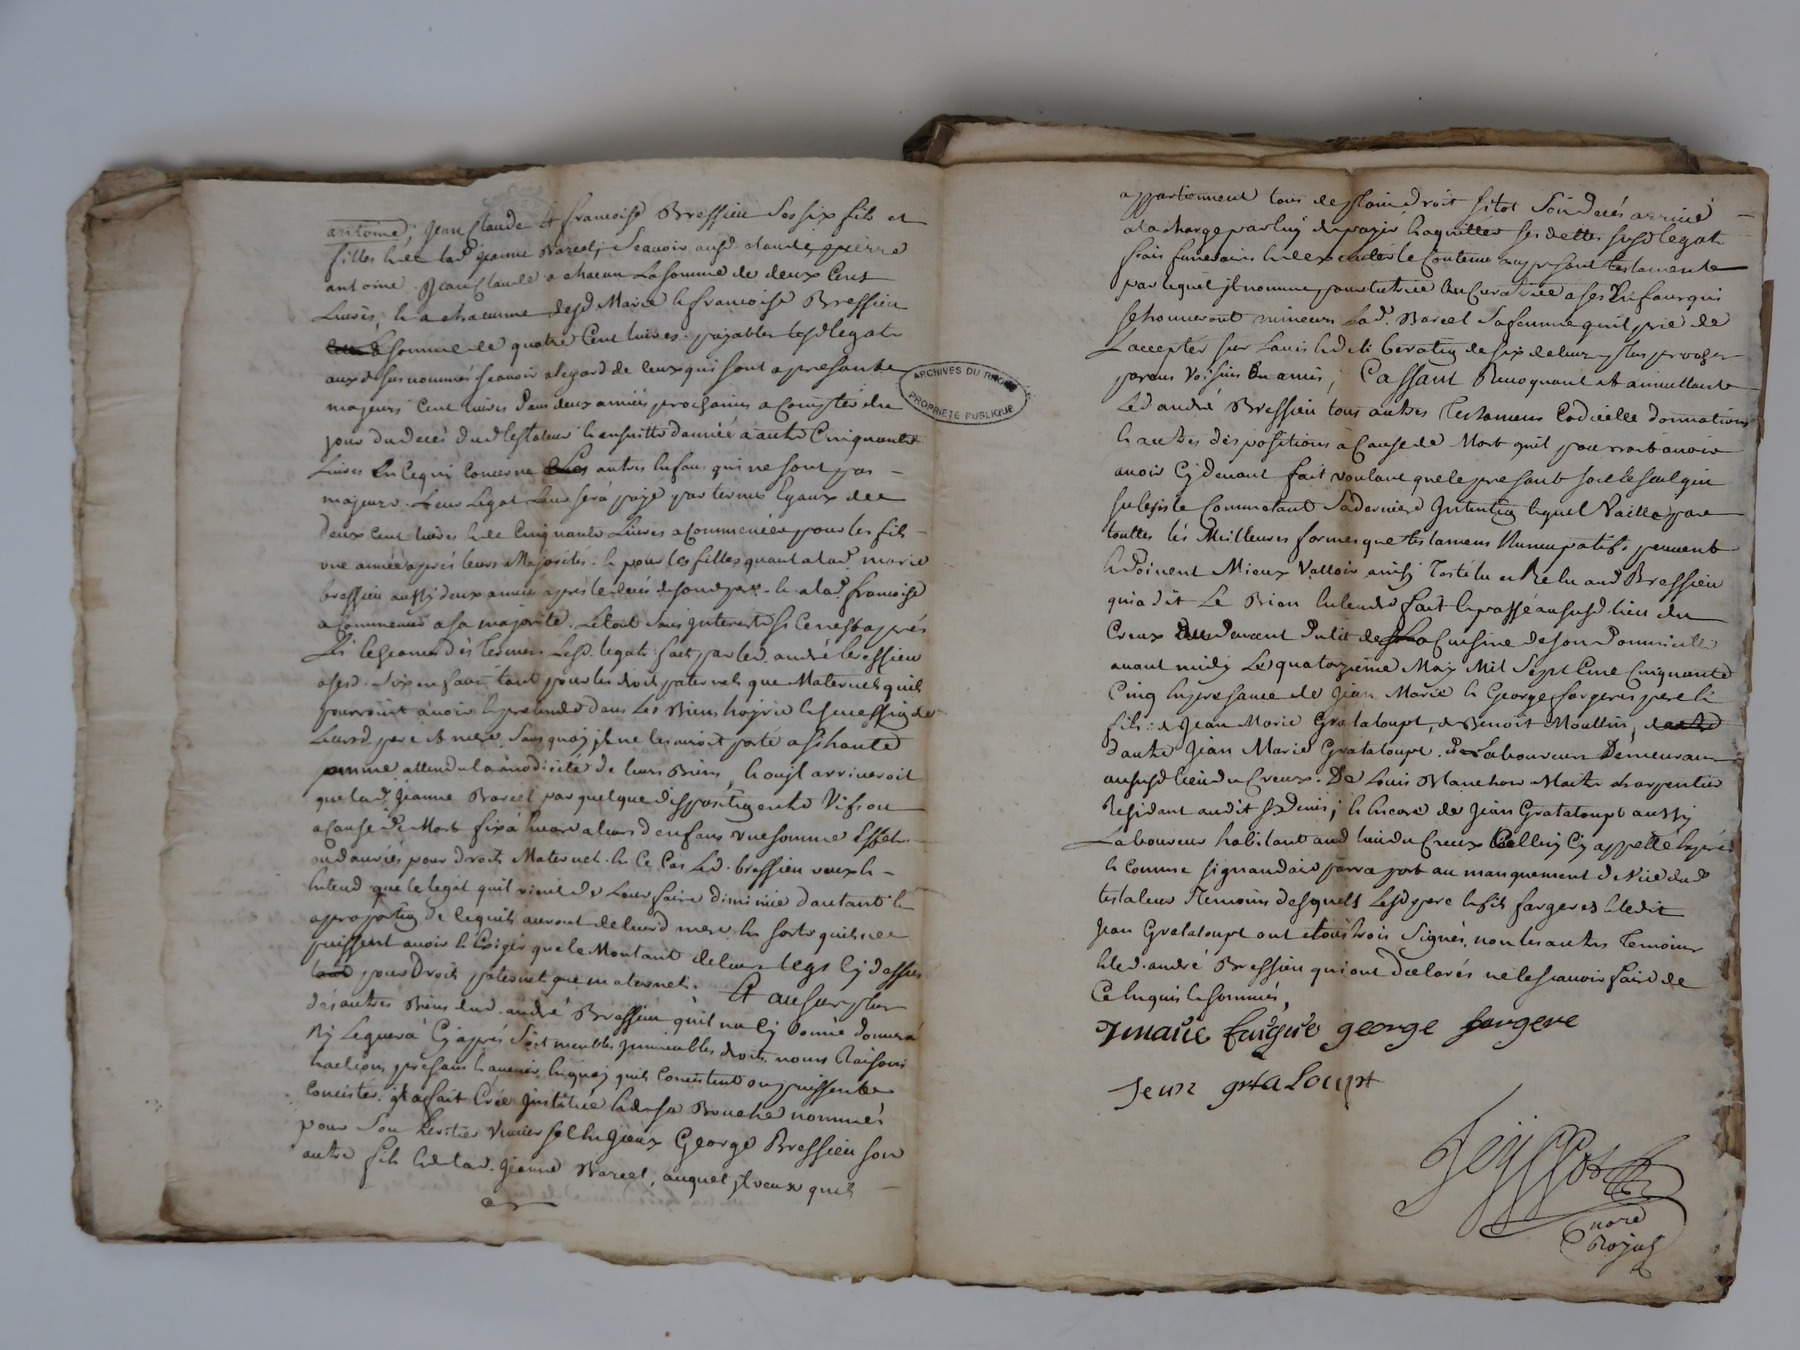 antoine, Jean Claude & francoise Bressieu ses six fils et
filles & de lad. jeanne Barcel; Scavoir ausd. claude, pierre
antoine Jean Claude a chacun La somme de deux Cent
Livres, & a chacune desd Marie & francoise Bressieu
somme de quatre Cent livres payables lesd legats
aux dessus nommés scavoir alegard de Ceux qui sont apresante
majeurs Cent livres Dans deux années prochaines a Compter du
jour du decés dud testateur & ensuitte dannée a autre Cinquante
Livres En Ce qui Concerne Les autres Enfans qui ne sont pas
majeurs. Leur Legat Leur sera payé par termes Egaux de
deux Cent livres & de Cinquante Livres a Commencer pour les fils
une année aprés leurs Majorités & pour les filles quant a lad. marie
bressieu aussy deux année aprés le decés de son pere & a lad. francoise
a Commencer a sa majorité. Le tout sans Interest si Ce nest aprés
Lesd. legats fait par led. andré bressieu
asesd. Six enfans tant pour les droit paternels que Maternels quils
pourroint avoir & pretendre dans Les Biens hoyrie & succession de
Leursd. pere & mere, Sans quoy jl ne les auroit porté a si haute
somme attendu la modicité de leurs Biens, & ou jl arriveroit
que lad. Jeanne Barcel par quelque disposition entre Vifs ou
a Cause de Mort fixa encore a leursd enfans une somme Effets
ou danrées pour droits Maternel. En Ce Cas Led. bressieu veux &
Entend que le legat quil vient de Leur faire diminue dautant &
a proportion de Ce quils auront de leurd mere, En sorte quils ne
puissent avoir & Exiger que le Montant de leurs legs Cy dessus
pour Droits paternels que maternels. Et au surplus
des autres Biens dud. andré Bressieu quil na Cy Donné donnera
Ny Leguera Cy aprés Soit meubles Jmmeubles droits noms Raisons
& actions presans & avenir En quoy quils Consistent ou puissent
Consister, jl a fait Créé Jnstitué & de sa Bouche nommé
pour Son heritier Universel En Jceux George Bressieu son
autre fils & de lad. Jeanne Barcel, auquel jl veux quils
ARCHIVES DU RHÔNE
PROPRIÉTÉ PUBLIQUE
appartiennent tous de plain Droit sitot Son decés arrivé
a la charge par luy de payer & aquitter ses dettes susd legats
frais funeraires & de executer le Contenu au present testament
par lequel jl nomme pour tutrice & Curatrice a ses Enfans qui
se trouveront mineurs Lad. Barcel Sa femme quil prie de
Laccepter sur Lavis & deliberation de six de leurs plus proches
parans Voisins ou amis; Cassant Revoquant & annullant
Led andré Bressieu tous autres Testamens Codicille donnations
& autres dispositions a Cause de Mort quil pourroit avoir
avoir Cy devant fait voulant que le presant soit le seul qui
subsiste Comme etant Sa derniere Jntention lequel Vaille par
touttes les Meilleures formes que testamens Nuncupatifs peuvent
& Doivent Mieux Valloir ainsy Testé lu et Relu aud Bressieu
qui a dit Le Bien Entendre fait & passé au susd lieu du
Creux au Devant Du lit de La Cuisine de son Domicille
avant midy Le quatorzieme May Mil Sept Cent Cinquante
Cinq En presance de Jean Marie & George fargeres pere &
fils: de Jean Marie Grataloupt, de Benoit Moullin,
dautre Jean Marie Grataloupt. Laboureurs Demeurans
au susd lieu du Creux. De Louis Blanchon Maitre charpentier
Residant audit St Denis; & Encore de Jean Grataloupt aussy
Laboureur habitant aud lieu du Creux Celluy Cy appellé Exprés
& Comme signandaire par raport au manquement de Vüe dud
testateur Temoins desquels Lesd pere & fils fargeres & ledit
Jean Grataloupt ont tous trois Signés, non les autres Temoins
& led. andré Bressieu qui ont declarés ne le scavoir faire de
Ce Enquis & sommés,
Jmarie fargere george fargere
Jean grtaloupt
nore
Royal